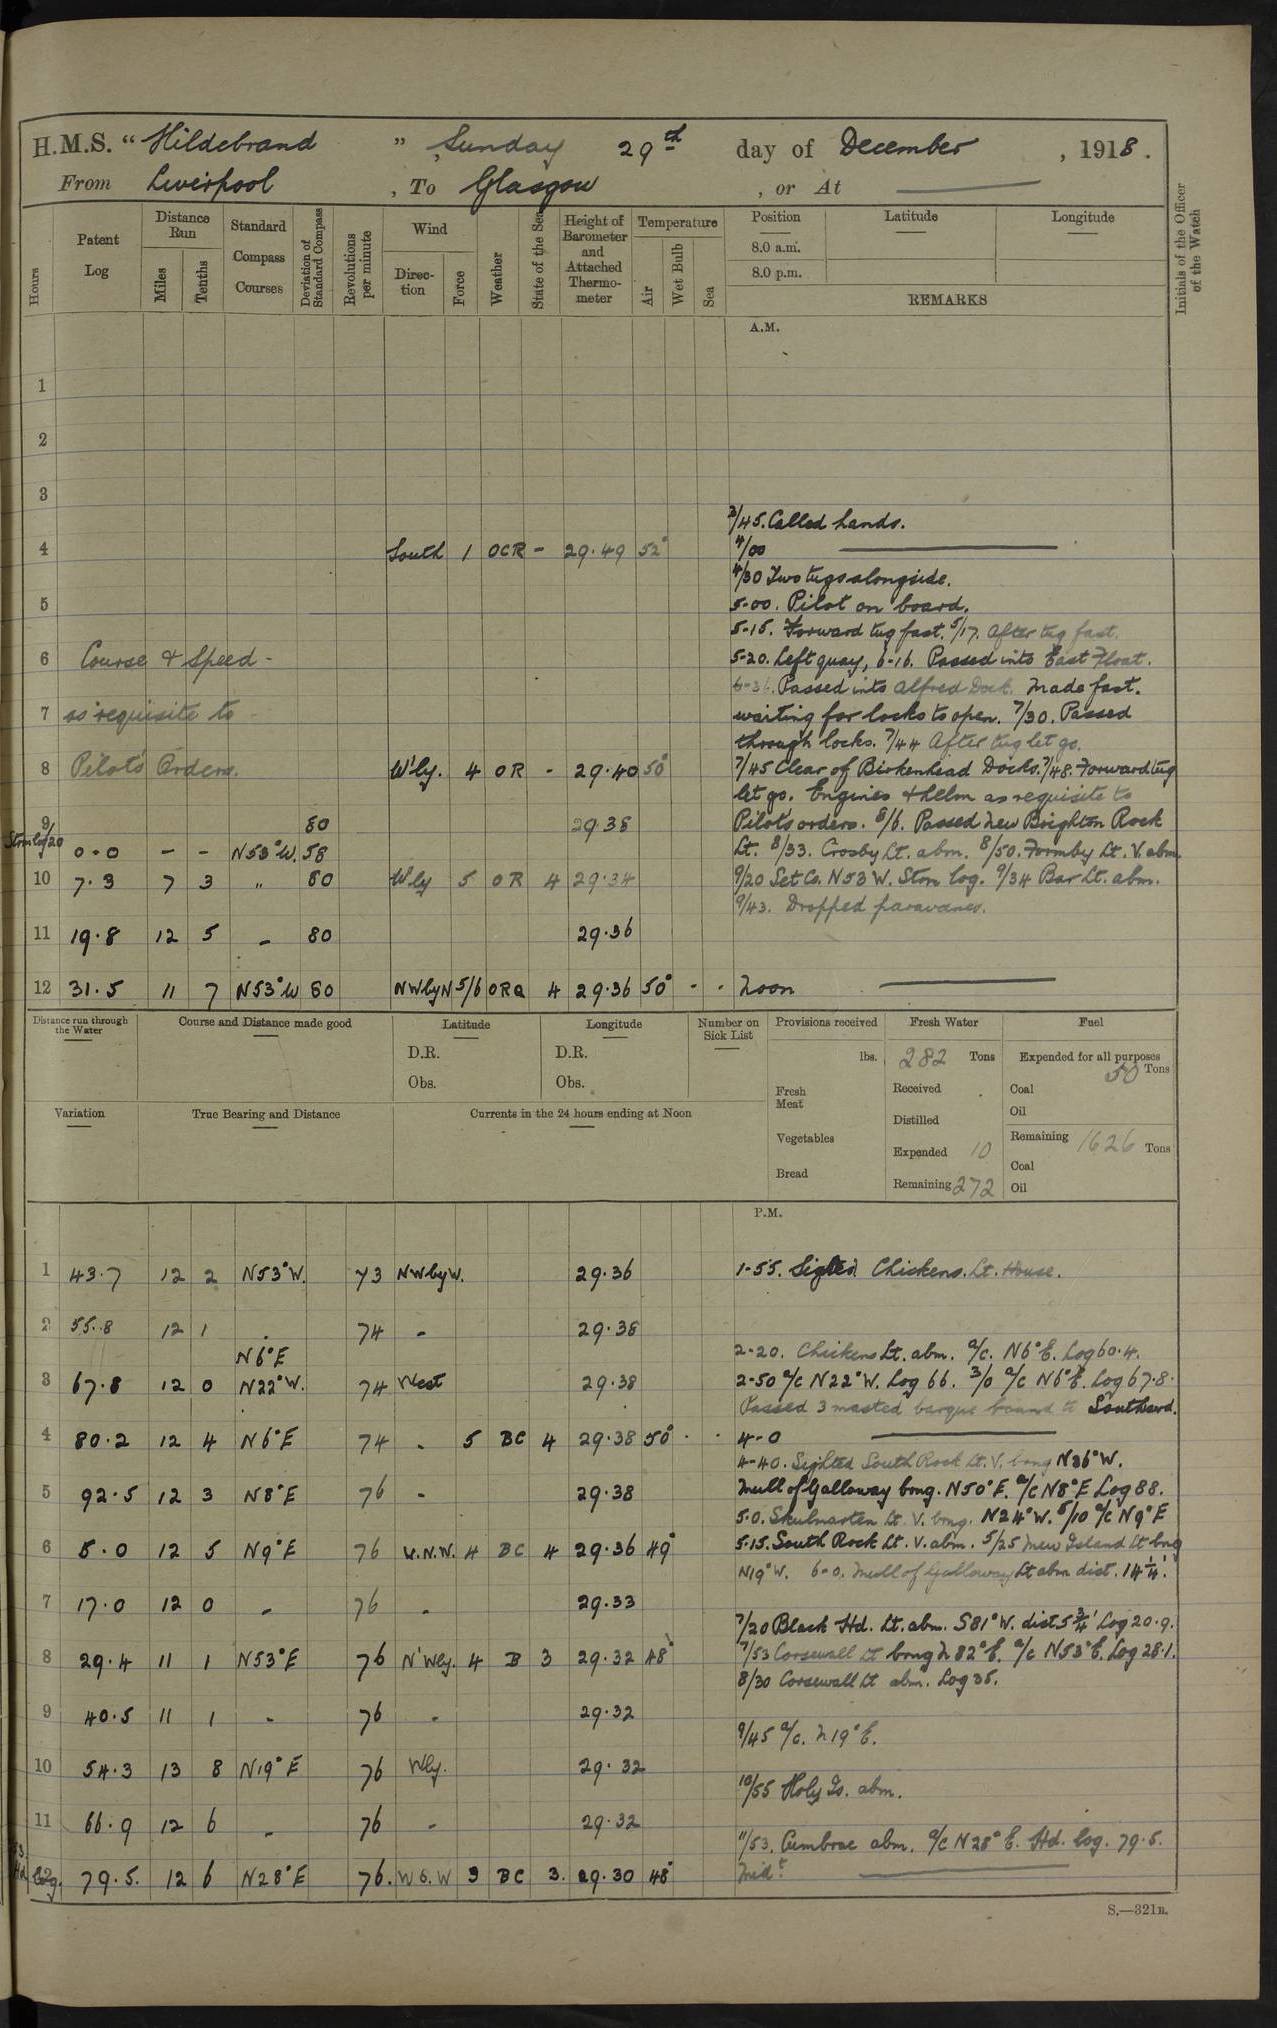 H.M.S. “ Hildebrand ” , Sunday 29th day of December , 1918 .
From Liverpool , To Glasgow , or At
Hours
Patent Log
Distance Run
Miles
Tenths
Standard Compass Courses
Deviation of Standard Compass
Revolutions per minute
Wind
Direction
Force
Weather
State of the Sea
Height of Barometer and Attached Thermometer
Temperature
Air
Wet Bulb
Sea
Position
8.0 a.m.
8.0 p.m.
Latitude
Longitude
REMARKS
Initials of the Officer of the Watch
A.M.
1
2
3
3/45. Called hands.
4 South 1 OCR - 29.49 52° 4/00
4/30 Two tugs alongside.
5 5-00. Pilot on board.
5-15. Forward tug fast. 5/17. After tug fast.
6 Course & Speed - 5-20. Left quay, 6-16. Passed into East Float.
6-36. Passed into Alfred Dock. Made fast.
7 as requisite to - waiting for locks to open. 7/30. Passed
through locks. 7/44 After tug let go.
8 Pilot's Orders. W'ly. 4 OR - 29.40 50° 7/45 Clear of Birkenhead Docks. 7/48. Forward tug
let go. Engines & helm as requisite to
9 80 29.38 Pilot's orders. 8/6. Passed New Brighton Rock
0.0 - - N53°W. 58 Lt. 8/33. Crosby Lt. abm. 8/50. Formby Lt. V. abm.
10 7.3 7 3 " 80 W'ly 5 OR 4 29.34 9/20 Set Co. N53W. Strm log. 9/34 Bar Lt. abm.
9/43. Dropped paravanes.
11 19.8 12 5 - 80 29.36
12 31.5 11 7 N53°W 80 NWbyN 5/6 ORQ 4 29.36 50° - - Noon
Distance run through the Water
Course and Distance made good
Latitude
D.R.
Obs.
Longitude
D.R.
Obs.
Number on Sick List
Provisions received
lbs.
Fresh Meat
Vegetables
Bread
Fresh Water
282 Tons
Received
Distilled
Expended 10
Remaining 272
Fuel
Expended for all purposes
50 Tons
Coal
Oil
Remaining 1626 Tons
Coal
Oil
Variation
True Bearing and Distance
Currents in the 24 hours ending at Noon
P.M.
1 43.7 12 2 N53°W. 73 NWbyW. 29.36 1-55. Sighted Chickens. Lt. House.
2 55.8 12 1 - 74 - 29.38
N6°E 2-20. Chickens Lt. abm. a/c. N6°E. Log 60.4.
3 67.8 12 0 N22°W. 74 West 29.38 2-50 a/c N22°W. Log 66. 3/0 a/c N6°E. Log 67.8.
Passed 3 masted barque bound to Southward.
4 80.2 12 4 N6°E 74 - 5 BC 4 29.38 50° - - 4-0
4-40. Sighted South Rock Lt. V. brng N36°W.
5 92.5 12 3 N8°E 76 - 29.38 Mull of Galloway brng. N50°E. a/c N8°E Log 88.
5.0. Skulmarten Lt. V. brng. N24°W. 5/10 a/c N9°E
6 5.0 12 5 N9°E 76 W.N.W. 4 BC 4 29.36 49° 5.15. South Rock Lt. V. abm. 5/25 Mew Island Lt brng
N19°W. 6-0. Mull of Galloway Lt abm dist. 14¼'.
7 17.0 12 0 - 76 - 29.33
7/20 Black Hd. Lt. abm. S81°W. dist 5¾' Log 20.9.
8 29.4 11 1 N53°E 76 N'Wly. 4 B 3 29.32 48° 7/53 Corsewall Lt brng N82°E. a/c N53°E. Log 28.1.
8/30 Corsewall Lt abm. Log 35.
9 40.5 11 1 - 76 - 29.32
9/45 a/c. N19°E.
10 54.3 13 8 N19°E 76 Wly. 29.32
10/55 Holy Is. abm.
11 66.9 12 6 - 76 - 29.32
11/53. Cumbrae abm. a/c N28°E. Hd. log. 79.5.
79.5. 12 6 N28°E 76. W S. W 3 BC 3. 29.30 48° Midt.
S.—321B.